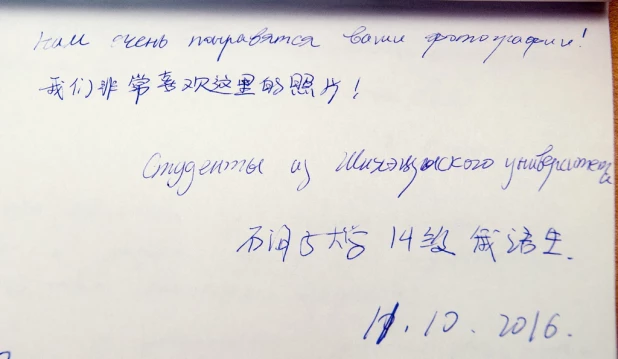 Нам очень понравятся ваши фотографии!
我们非常喜欢这里的照片！
Студенты из Шихэцзыского университета
石河子大学 14级 俄语生.
11.10.2016.